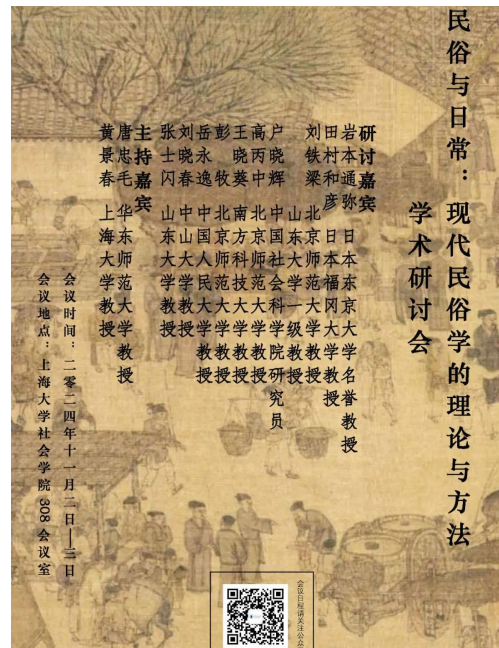 民俗与日常：现代民俗学的理论与方法
学术研讨会
研讨嘉宾
岩本通弥 日本东京大学名誉教授
田村和彦 日本福冈大学教授
刘铁梁 北京师范大学教授
山东大学一级教授
户晓辉 中国社会科学院研究员
高丙中 北京师范大学教授
王晓葵 南方科技大学教授
彭牧 北京师范大学教授
岳永逸 中国人民大学教授
刘晓春 中山大学教授
张士闪 山东大学教授
主持嘉宾
唐忠毛 华东师范大学教授
黄景春 上海大学教授
会议时间：二零二四年十一月二日——三日
会议地点：上海大学社会学院308会议室
会议日程请关注公众